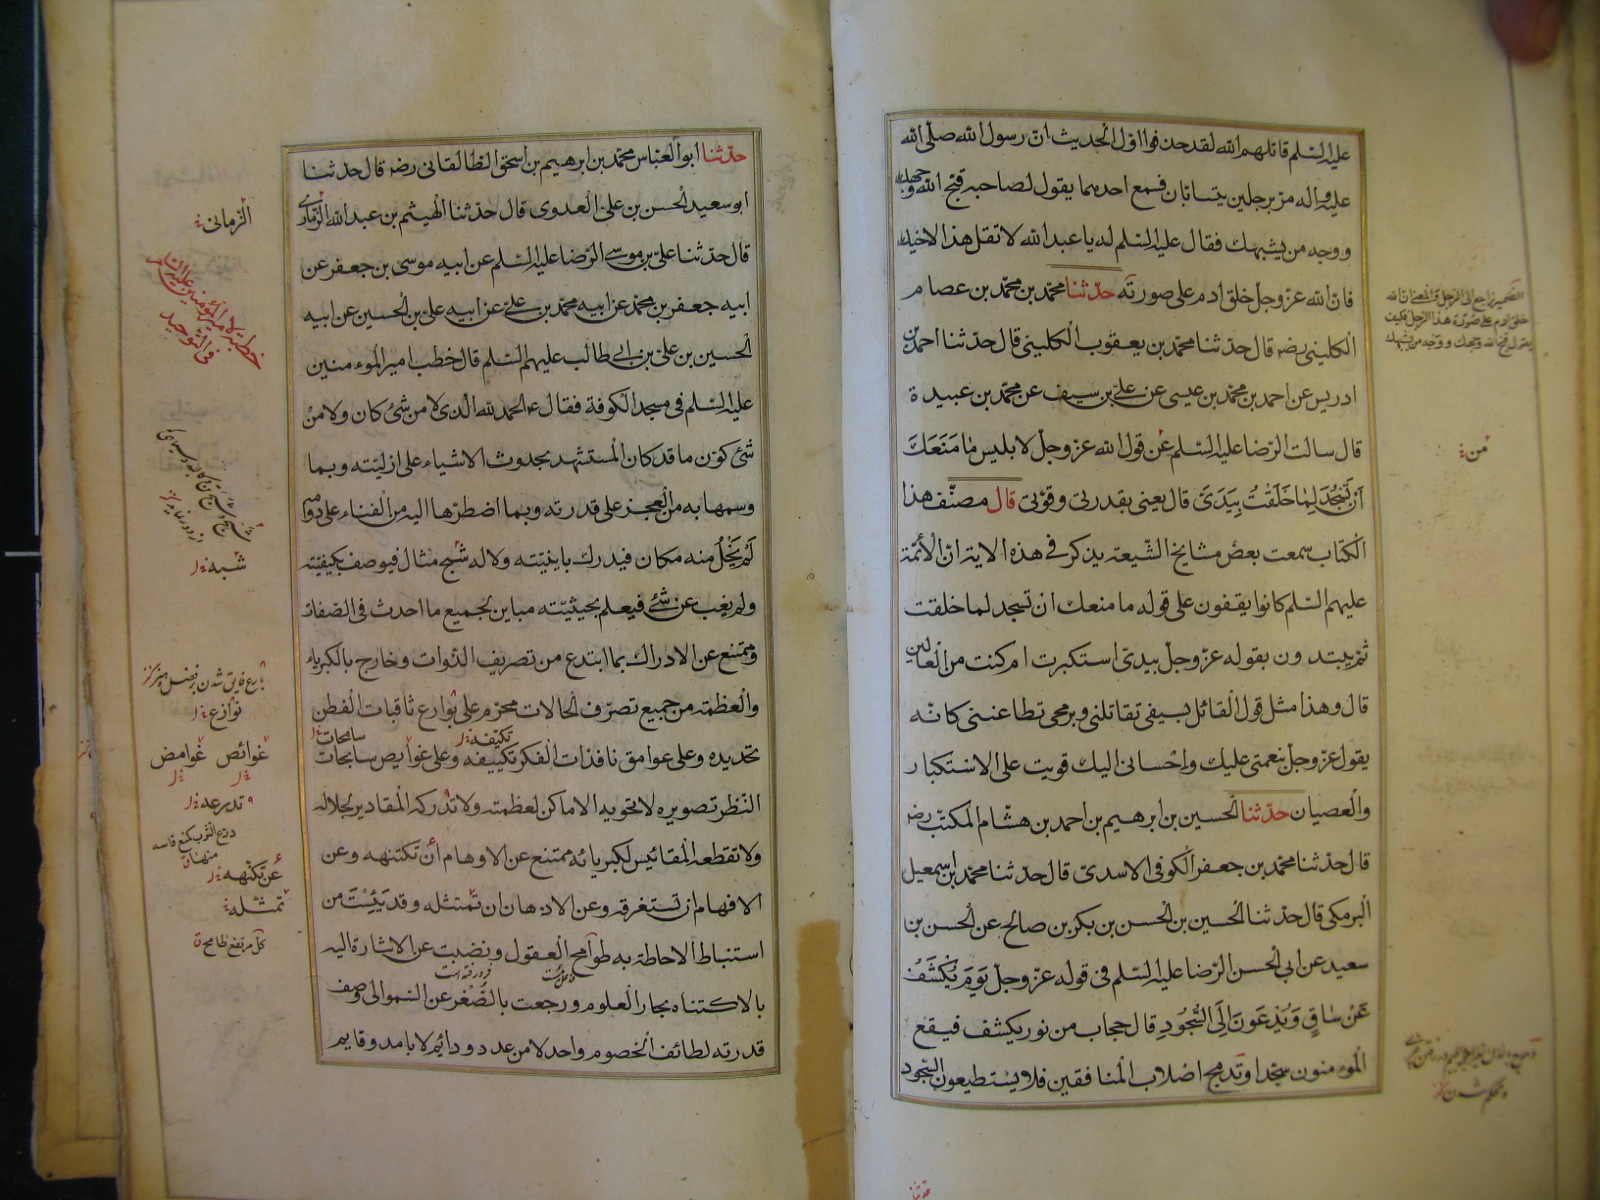 عليه السّلم قاتلهم الله لقد حذفوا اوّل الحديث انّ رسول الله صلّى الله
عليه واله مرّ برجلين يتسابّان فسمع احدهما يقول لصاحبه قبّح الله وجهك
ووجه من يشبهك فقال عليه السّلم له يا عبد الله لا تقل هذا لاخيك
فانّ الله عزّ وجلّ خلق ادم على صورته حدّثنا محمّد بن محمّد بن عصام
الكلينى رضه قال حدّثنا محمّد بن يعقوب الكلينى قال حدّثنا احمد بن
ادريس عن احمد بن محمّد بن عيسى عن علىّ بن سيف عن محمّد بن عبيدة
قال سالت الرّضا عليه السّلم عن قول الله عزّ وجلّ لابليس مَا مَنَعَكَ
اَنْ تَسْجُدَ لِمَا خَلَقْتُ بِيَدَىَّ قال يعنى بقدرتى وقوّتى قال مصنّف هذا
الكتاب سمعت بعض مشايخ الشّيعة يذكر فى هذه الاية ان الأئمّة
عليهم السّلم كانوا يقفون على قوله ما منعك ان تسجد لما خلقت
ثم يبتدون بقوله عزّ وجلّ بيدىّ استكبرت ام كنت من العالين
قال وهذا مثل قول القائل بسيفى تقاتلنى وبرمحى تطاعننى كانّه
يقول عزّ وجلّ بنعمتى عليك واحسانى اليك قويت على الاستكبار
والعصيان حدّثنا الحسين بن ابرهيم بن احمد بن هشام المكتّب رضه
قال حدّثنا محمّد بن جعفر الكوفى الاسدىّ قال حدّثنا محمّد بن اسمعيل
البرمكى قال حدّثنا الحسين بن الحسن بن بكر بن صالح عن الحسن بن
سعيد عن ابى الحسن الرّضا عليه السّلم فى قوله عزّ وجلّ يَوْمَ يُكْشَفُ
عَنْ سَاقٍ وَيُدْعَوْنَ اِلَى السُّجُودِ قال حجاب من نور يكشف فيقع
المومنون سجّدا وتدمج اصلاب المنافقين فلا يستطيعون السّجود
الضّمير راجع الى الرّجل والمعنى انّ الله
خلق ادم على صورة هذا الرّجل فكيف
يقول قبّح الله وجهك ووجه من يشبهك
من
محكم شدن
حدّثنا ابو العبّاس محمّد بن ابرهيم بن اسحق الطّالقانى رضه قال حدّثنا
ابو سعيد الحسن بن على العدوى قال حدّثنا الهيثم بن عبد الله الرّمادى
قال حدّثنا علىّ بن موسى الرّضا عليه السّلم عن ابيه موسى بن جعفر عن
ابيه جعفر بن محمّد عن ابيه محمّد بن علىّ عن ابيه علىّ بن الحسين عن ابيه
الحسين بن علىّ بن ابى طالب عليهم السّلم قال خطب امير المومنين
عليه السّلم فى مسجد الكوفة فقال ع الحمد لله الّذى لا من شئ كان ولا من
شئ كوّن ما قد كان المستشهد بحدوث الاشياء على ازليّته وبما
وسمها به من العجز على قدرته وبما اضطرّها اليه من الفناء على دوامه
لم يَخْلُ منه مكان فيدرك باينيّته ولا له شبح مثال فيوصف بكيفيّته
ولم يغب عن شئ فيعلم بحيثيّته مباين لجميع ما احدث فى الصّفات
وممتنع عن الادراك بما ابتدع من تصريف الذّوات وخارج بالكبرياء
والعظمة من جميع تصرّف الحالات محرّم على بوارع ثاقبات الفطن
تحديده وعلى عوامق نافذات الفكر تكييفه وعلى غوايص سابحات
النّظر تصويره لا تحويه الاماكن لعظمته ولا تدركه المقادير لجلاله
ولا تقطعه المقائيس لكبريائه ممتنع عن الاوهام أن تكتنهه وعن
الافهام ان تستغرقه وعن الاذهان ان تمتثله وقد يَئِسَتْ من
استنباط الاحاطة به طوامح العقول ونضبت عن الاشارة اليه
بالاكتناه بحار العلوم ورجعت بالصّغر عن السّمو الى وصف
قدرته لطائف الخصوم واحد لا من عدد ودائم لا بامد وقايم
الرّمانى
خطبة لامير المؤمنين عليه السّلم
فى التوحيد
شبه
نوازع
تكيّفه
سابحات
غوائص غوامض
تدرعه
عن تكنّهه
تمثّله
كل مرتفع طامح ق